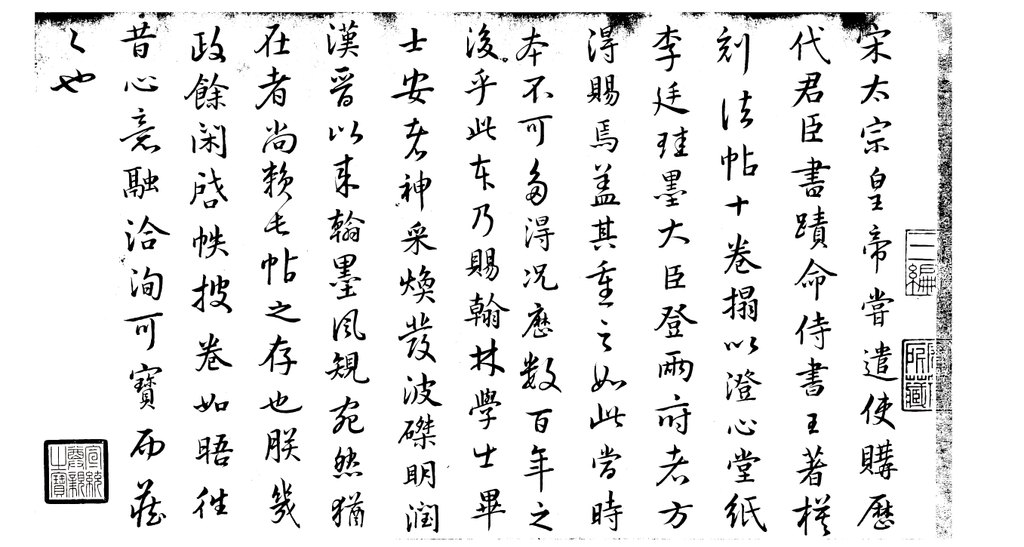 宋太宗皇帝嘗遣使購歷
代君臣書蹟命侍書王著模
刻法帖十卷搨以澄心堂紙
李廷珪墨大臣登兩府者方
得賜焉蓋其重之如此當時
本不可多得况歷數百年之
後乎此本乃賜翰林學士畢
士安者神采煥發波磔明潤
漢晉以來翰墨風規宛然猶
在者尚賴此帖之存也朕幾
政餘閑啓帙披卷如晤往
昔心意融洽洵可寶而藏
之也
宣統尊親之寶